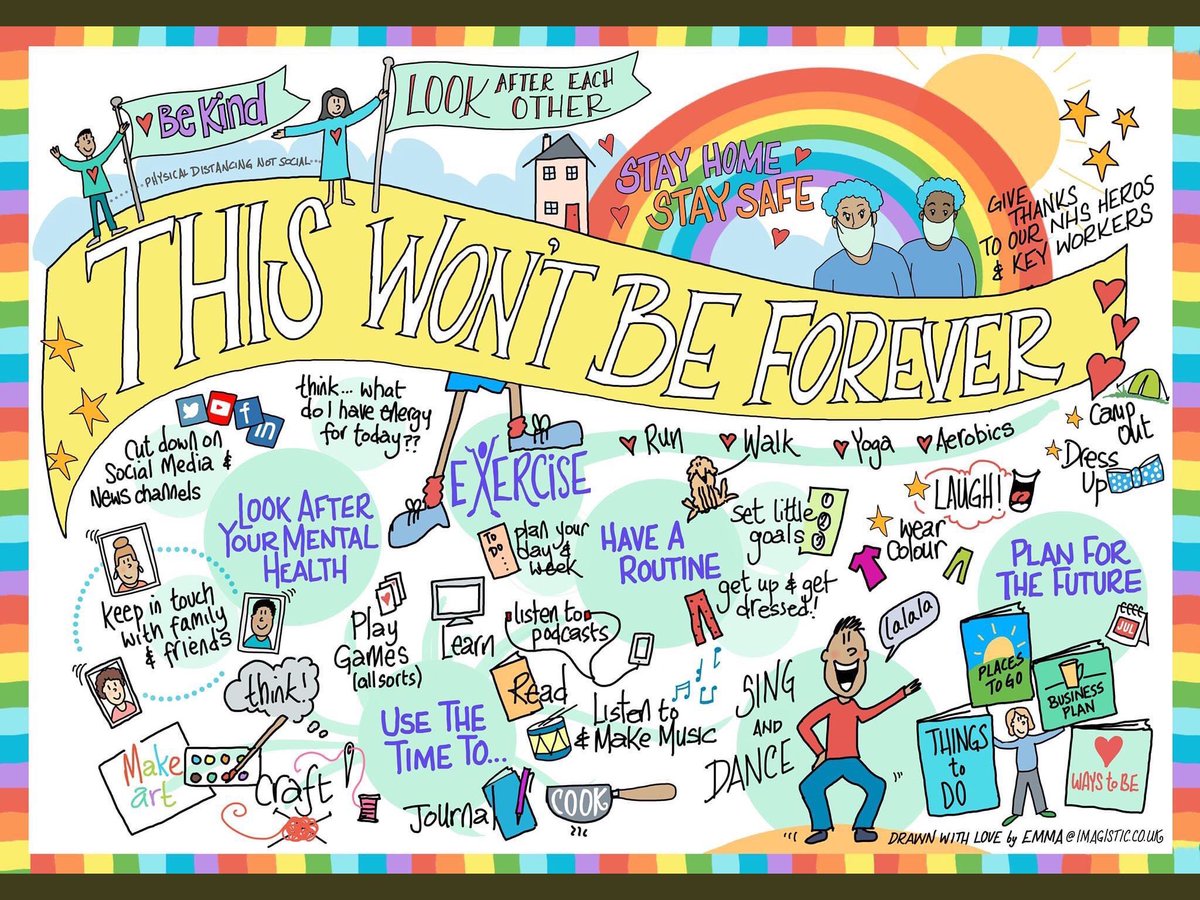 Be Kind
LOOK AFTER EACH
OTHER
PHYSICAL DISTANCING NOT SOCIAL...
STAY HOME
STAY SAFE
GIVE
THANKS
TO OUR NHS HEROS
& KEY WORKERS
THIS WON'T BE FOREVER
Cut down on
Social Media &
News channels
f
in
think... what
do I have energy
for today??
LOOK AFTER
YOUR MENTAL
HEALTH
keep in touch
with family
& friends
EXERCISE
Run
Walk
Yoga
Aerobics
Camp
Out
Dress
Up
LAUGH!
wear
Colour
TO
DO...
plan your
day &
week
HAVE A
ROUTINE
set little
goals
1
2
3
get up & get
dressed!
PLAN FOR
THE FUTURE
JUL
PLACES
TO GO
BUSINESS
PLAN
THINGS
to
DO
WAYS to BE
Play
Games
(all sorts)
Learn
listen to
podcasts
Read
USE THE
TIME TO...
Listen to
& Make Music
think!
Make
art
craft
Journal
COOK
SING
AND
DANCE
lalala
DRAWN WITH LOVE by EMMA@IMAGISTIC.CO.UK